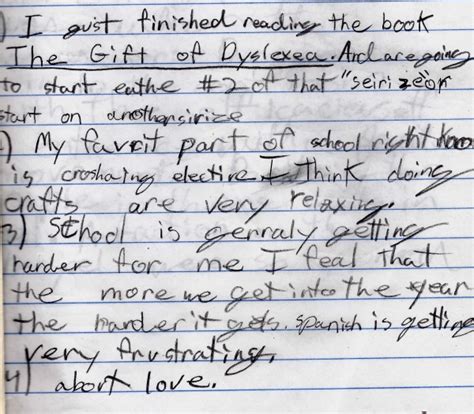 ) I gust finished reading the book
The Gift of Dyslexea. And are going
to start eathe #2 of that "seirizeor
start on anothersirize
) My favrit part of school right Know
is croshaing elective I think doing
crafts are very relaxing.
3) School is gerraly getting
harder for me I feel that
the more we get into the year
the harder it gets. spanish is getting
very frustrating.
4) abort love.